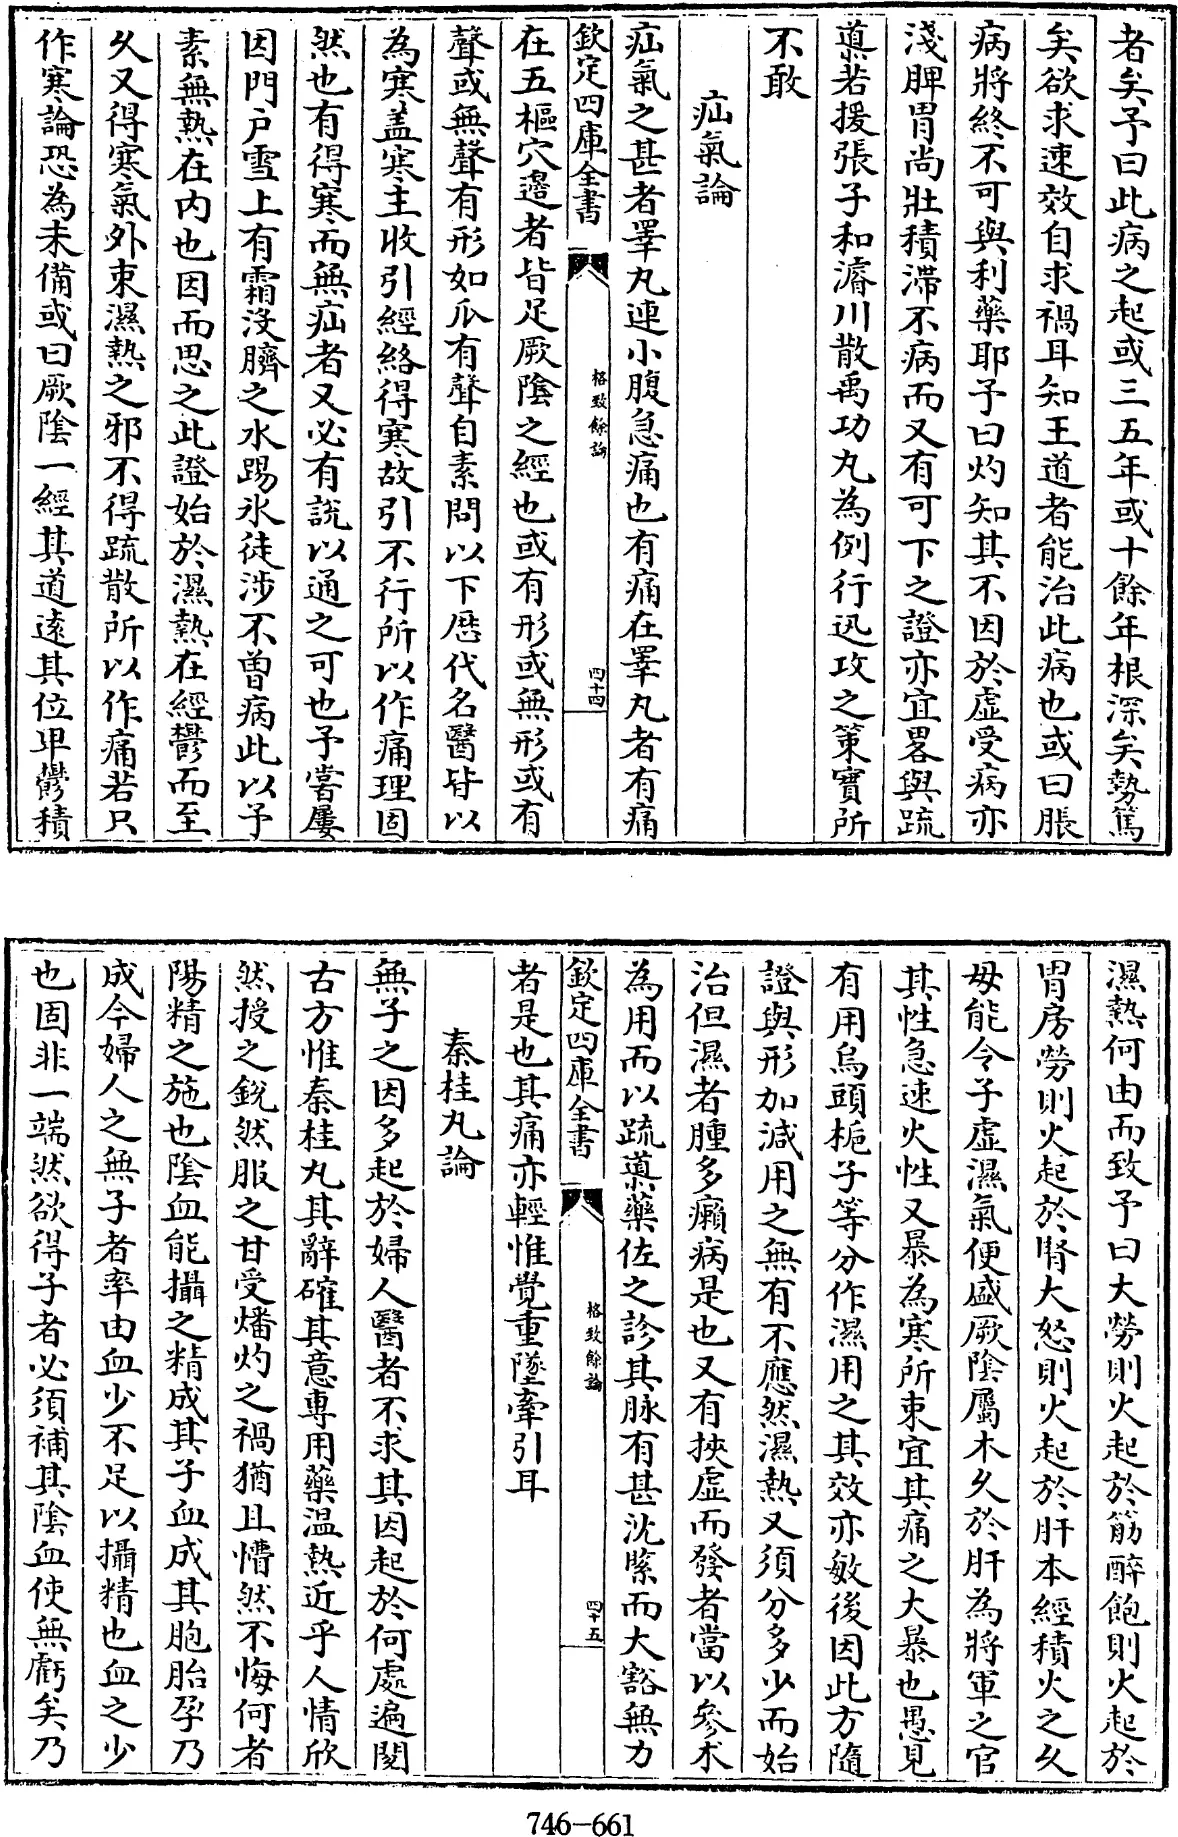 者矣予曰此病之起或三五年或十餘年根深矣勢篤
矣欲求速效自求禍耳知王道者能治此病也或曰脹
病將終不可與利藥耶予曰灼知其不因於虛受病亦
淺脾胃尚壯積滯不病而又有可下之證亦宜畧與疏
導若援張子和濬川散禹功丸為例行迅攻之策實所
不敢
疝氣論
疝氣之甚者睪丸連小腹急痛也有痛在睪丸者有痛
欽定四庫全書
格致餘論
四十四
在五樞穴邉者皆足厥陰之經也或有形或無形或有
聲或無聲有形如瓜有聲自素問以下歴代名醫皆以
為寒盖寒主收引經絡得寒故引不行所以作痛理固
然也有得寒而無疝者又必有説以通之可也予嘗屢
因門户雪上有霜沒臍之水踢氷徒涉不曾病此以予
素無熱在内也因而思之此證始於濕熱在經鬱而至
久又得寒氣外束濕熱之邪不得疏散所以作痛若只
作寒論恐為未備或曰厥陰一經其道逺其位卑鬱積
濕熱何由而致予曰大勞則火起於筋醉飽則火起於
胃房勞則火起於腎大怒則火起於肝本經積火之久
母能令子虛濕氣便盛厥陰屬木久於肝為將軍之官
其性急速火性又暴為寒所束宜其痛之大暴也愚見
有用烏頭梔子等分作濕用之其效亦敏後因此方隨
證與形加減用之無有不應然濕熱又須分多少而始
治但濕者腫多癩病是也又有挾虛而發者當以參术
為用而以疏導藥佐之診其脉有甚沈緊而大豁無力
欽定四庫全書
格致餘論
四十五
者是也其痛亦輕惟覺重墜牽引耳
秦桂丸論
無子之因多起於婦人醫者不求其因起於何處遍閱
古方惟秦桂丸其辭確其意專用藥温熱近乎人情欣
然授之鋭然服之甘受燔灼之禍猶且懵然不悔何者
陽精之施也陰血能攝之精成其子血成其胞胎孕乃
成今婦人之無子者率由血少不足以攝精也血之少
也固非一端然欲得子者必須補其陰血使無虧矣乃
746-661